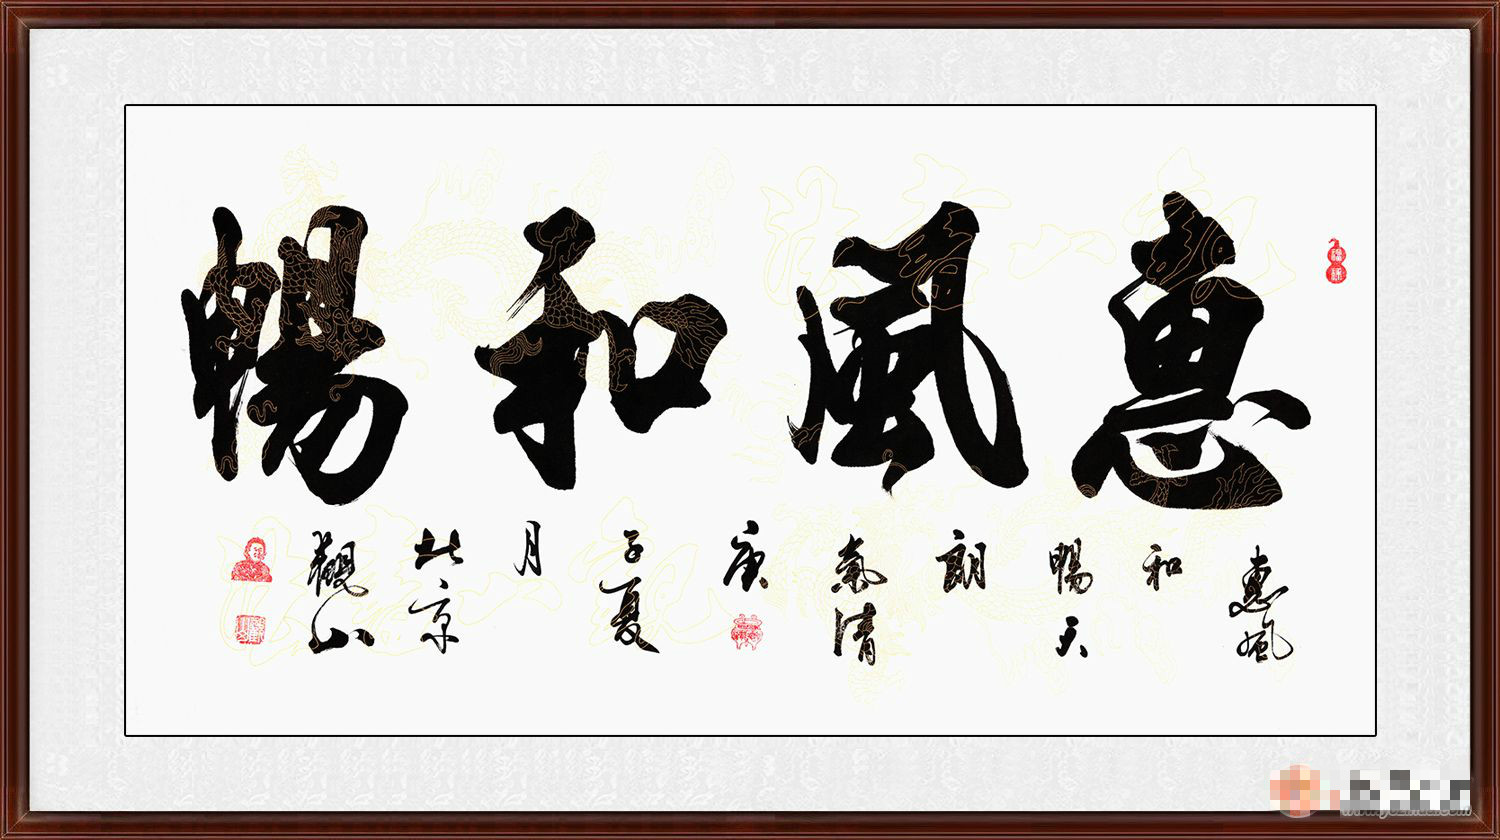 惠風和暢
惠風
和
暢天
朗
氣清
庚
子夏
月
北京
觀山